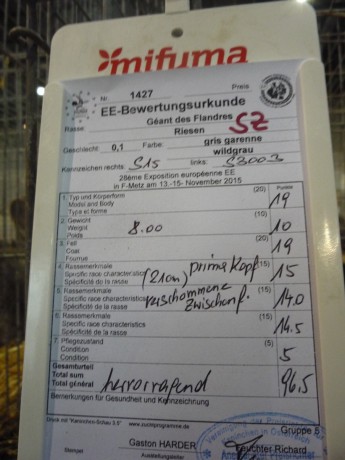 mifuma
Nr. 1427 Preis
EE-Bewertungsurkunde
Géant des Flandres
Rasse: Riesen SZ
gris garenne
Geschlecht: 0,1 Farbe: wildgrau
Kennzeichen rechts: S15 links: S3003
28ème Exposition européenne EE
in F-Metz am 13.-15- November 2015
1. Typ und Körperform (20) Punkte
Model and Body 19
Type et forme
2. Gewicht (10)
Weight 8.00 10
Poids
3. Fell (20)
Coat 19
Fourrure
4. Rassemerkmale (15)
Specific race characteristics (21cm) prima Kopf 15
Spécificité de la rasse
5. Rassemerkmale (15)
Specific race characteristics verschwommene 14.0
Spécificité de la rasse Zwischenf.
6. Rassemerkmale (15)
Specific race characteristics 14.5
Spécificité de la rasse
7. Pflegezustand (5)
Condition
Condition 5
Gesamturteil
Total sum
Total général hervorragend 96,5
Bemerkungen für Gesundheit und Kennzeichnung
Druck mit "Kaninchen-Schau 5.0"
Gruppe 5
Gaston HARDER Feuchter Richard
Stempel Ausstellungsleiter